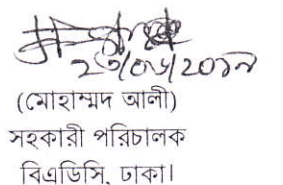 ২৩/০৬/২০১৯
(মোহাম্মদ আলী)
সহকারী পরিচালক
বিএডিসি, ঢাকা।